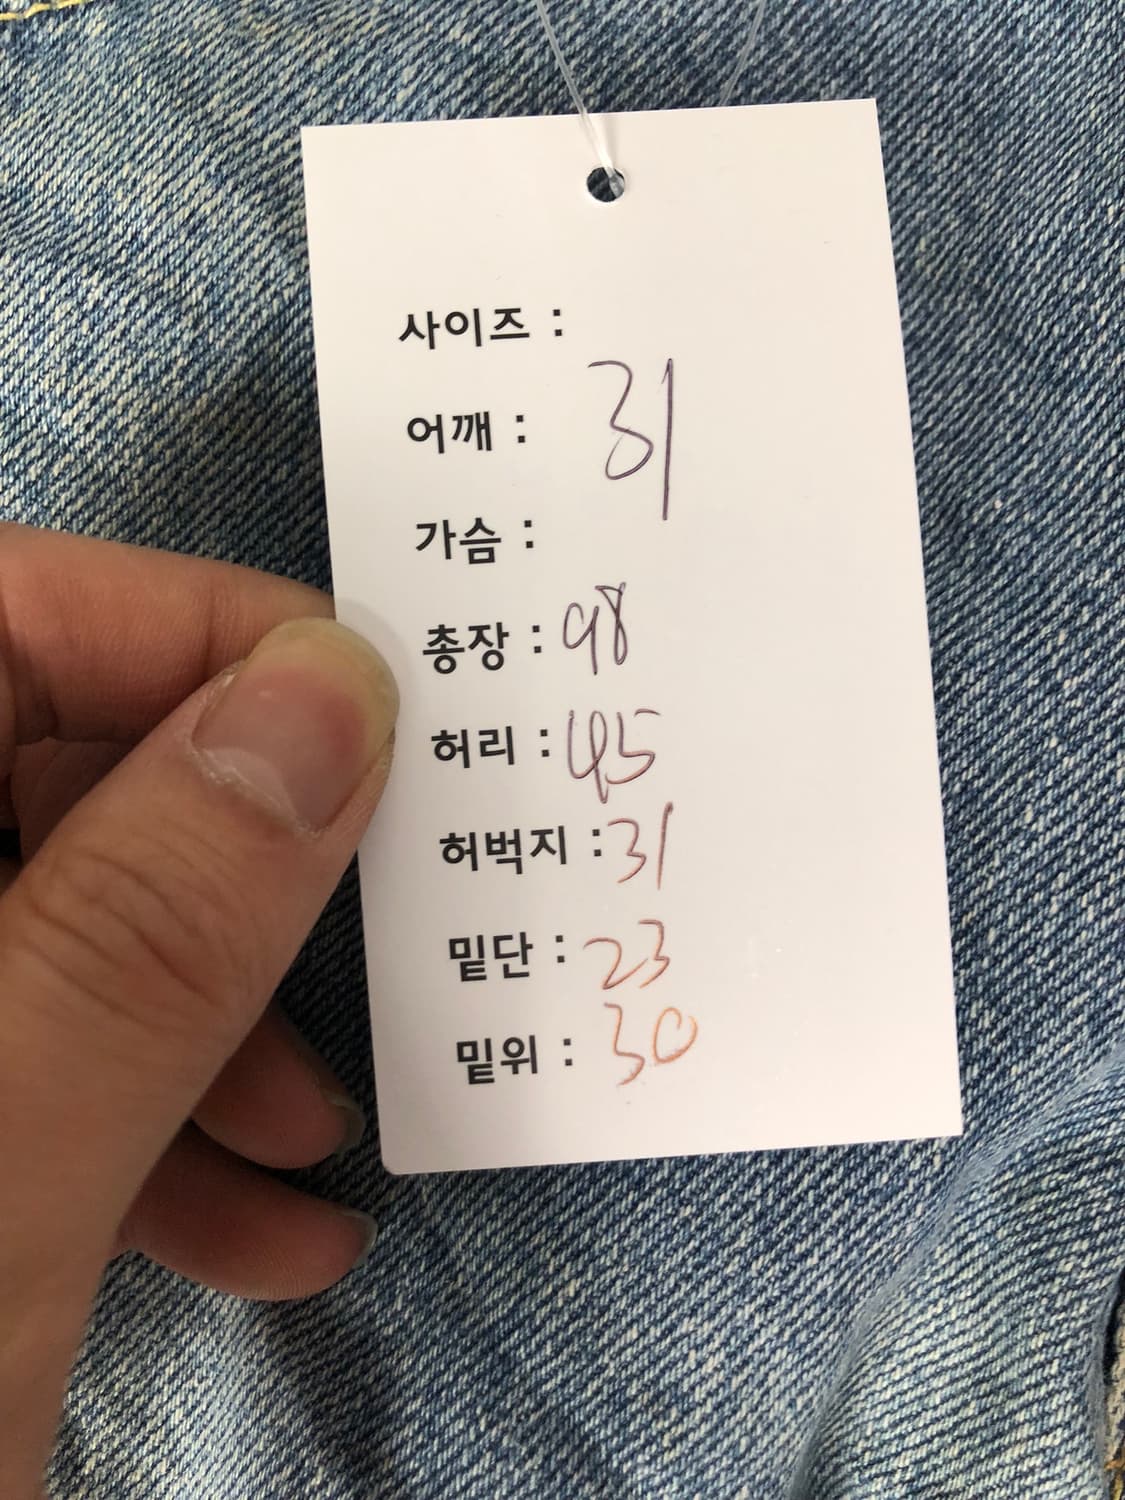 사이즈 :
어깨 : 31
가슴 :
총장 : 98
허리 : 45
허벅지 : 31
밑단 : 23
밑위 : 30